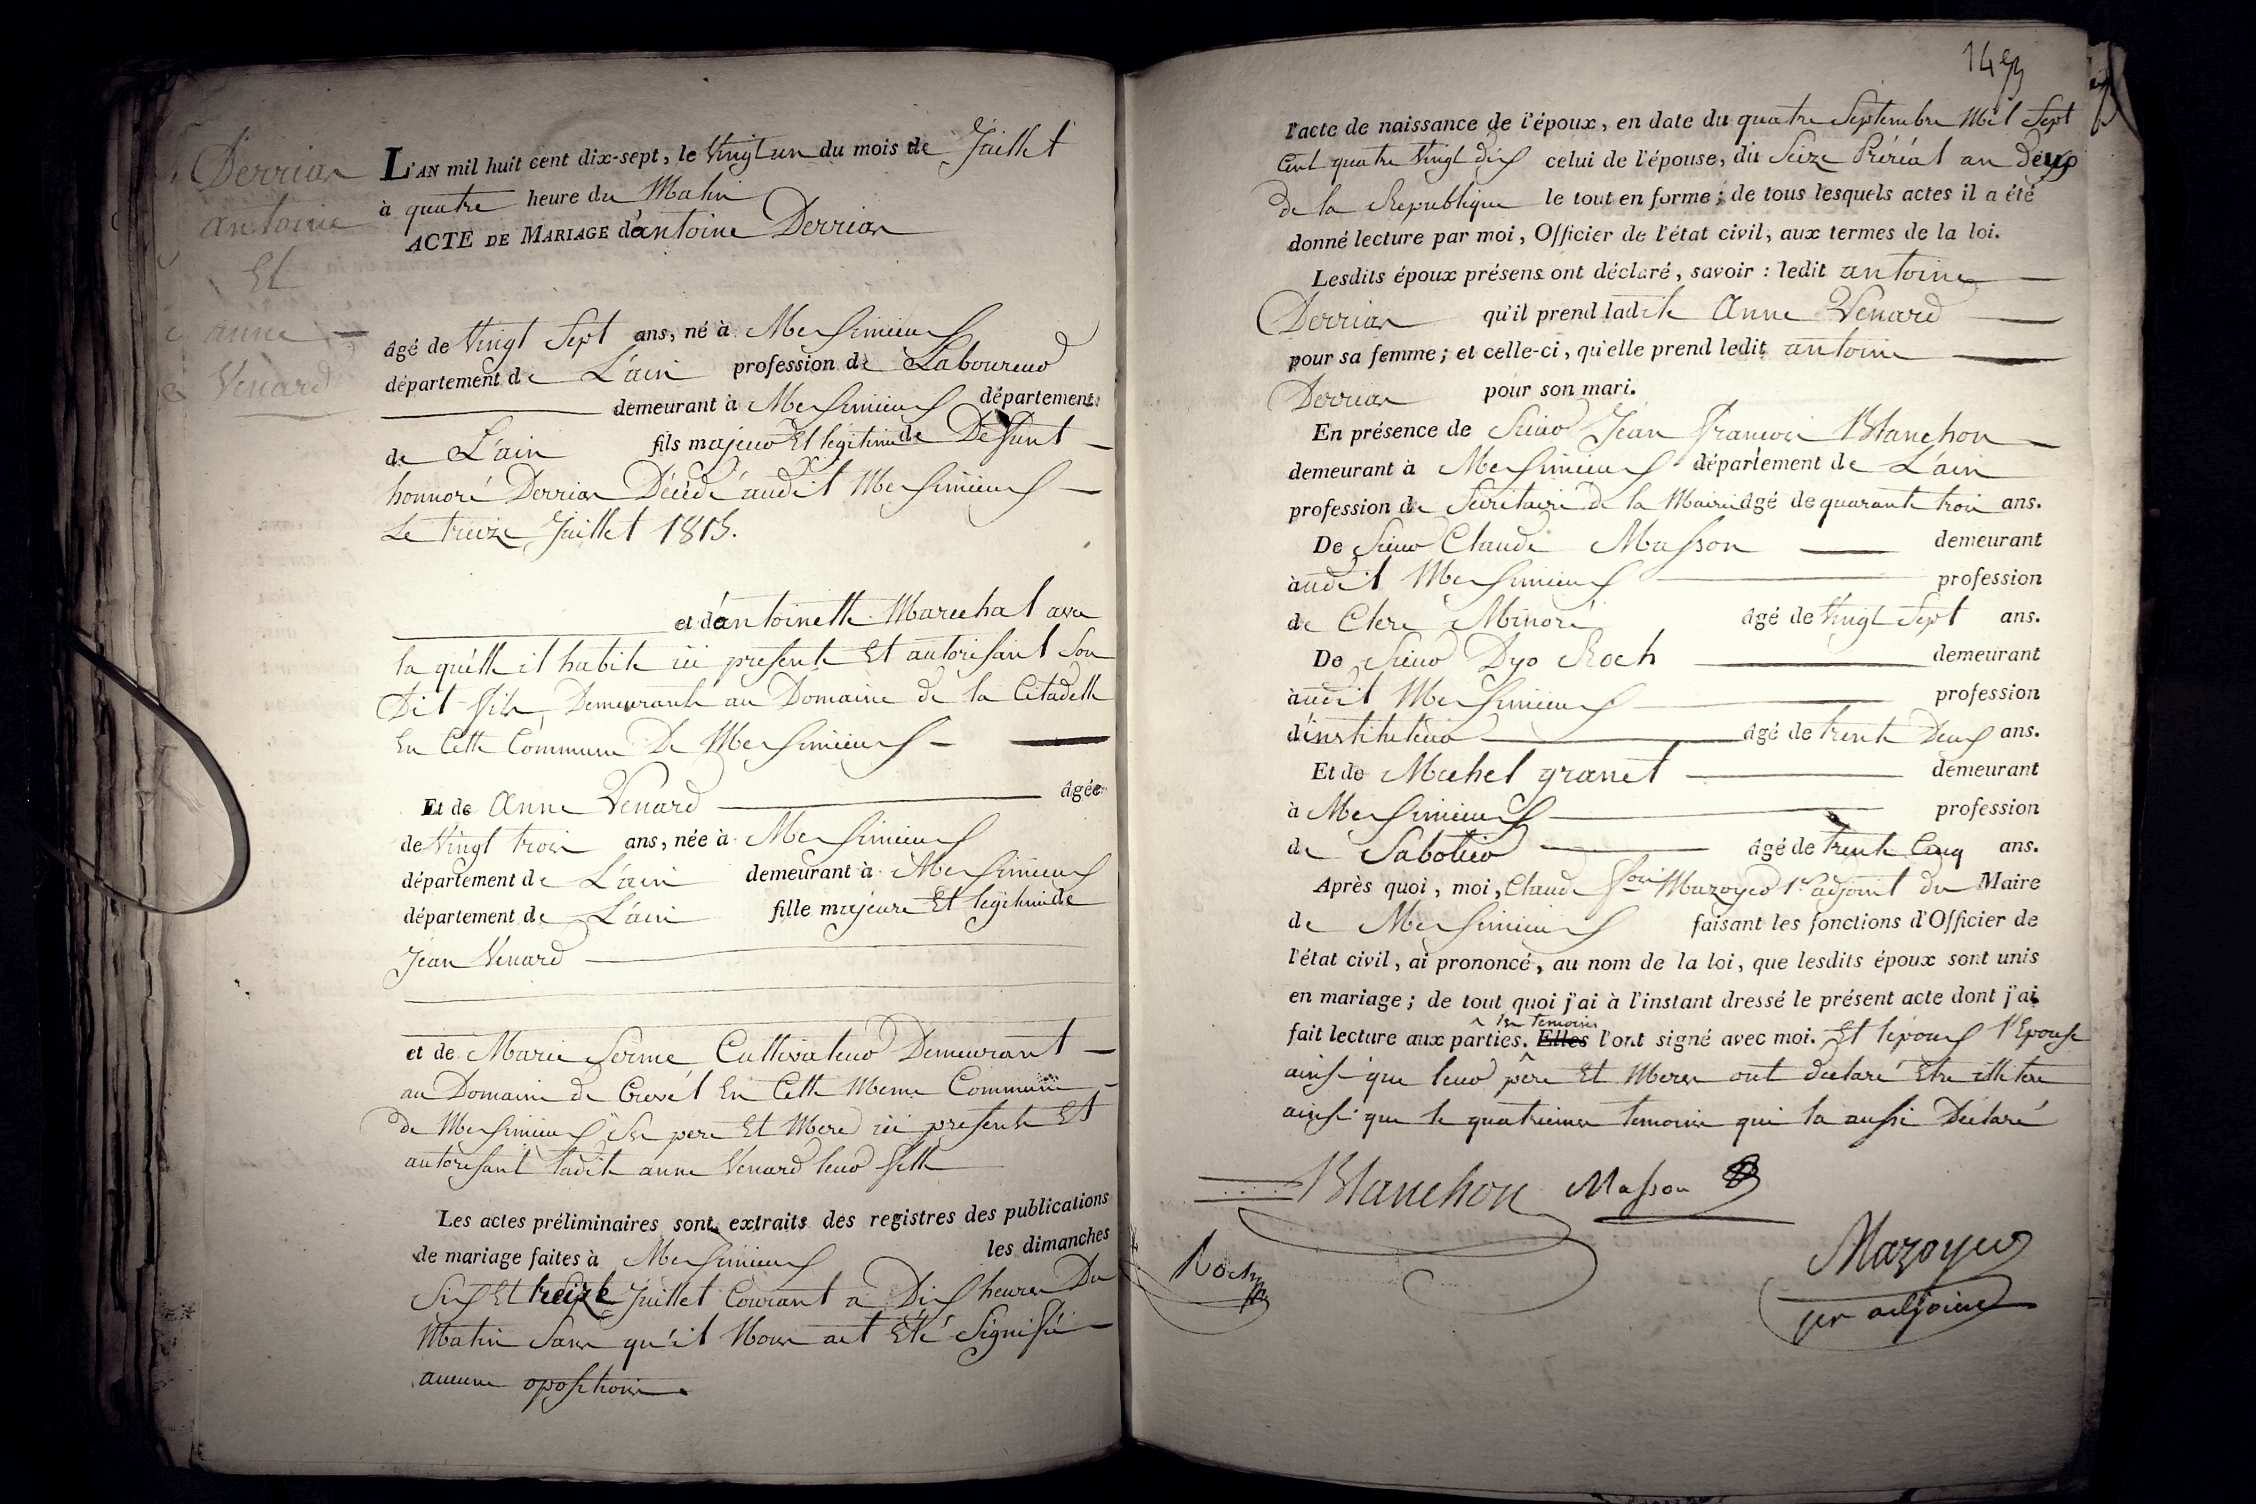 Derrias
antoine
Et
anne
Venard
L'AN mil huit cent dix-sept, le Vingt un du mois de Juillet
à quatre heure du Matin
ACTE DE MARIAGE d'antoine Derrias
âgé de Vingt Sept ans, né à Messimieux
département de L'ain profession de Laboureur
demeurant à Messimieux département
de L'ain fils majeur Et légitime de Deffunt
honnoré Derrias Décédé audit Messimieux
Le treize Juillet 1815.
et d'antoinette Marechal avec
la quelle il habite ici presente Et autorisant Son
Dit fils, Demeurante au Domaine de la Citadelle
En Cette Commune De Messimieux
Et de Anne Venard âgée
de Vingt trois ans, née à Messimieux
département de L'ain demeurant à Messimieux
département de L'ain fille majeure Et légitime de
Jean Venard
et de Marie Serme Cultivateur Demeurant
au Domaine de Crevel En Cette Meme Commune
de Messimieux Ses pere Et Mere ici presents Et
autorisant ladite anne Venard leur fille
Les actes préliminaires sont extraits des registres des publications
de mariage faites à Messimieux les dimanches
Six Et treize Juillet Courant a Dix heures Du
Matin Sans qu'il Nous ait Eté Signifié
aucune opositions
l'acte de naissance de l'époux, en date du quatre Septembre Mil Sept
Cent quatre Vingt dix celui de l'épouse, du Seize Préréal an deux
de la Republique le tout en forme; de tous lesquels actes il a été
donné lecture par moi, Officier de l'état civil, aux termes de la loi.
Lesdits époux présens ont déclaré, savoir: ledit antoine
Derrias qu'il prend ladite Anne Venard
pour sa femme; et celle-ci, qu'elle prend ledit antoine
Derrias pour son mari.
En présence de Sieur Jean François Blanchon
demeurant à Messimieux département de L'ain
profession de Secrétaire de la Mairie âgé de quarante trois ans.
De Sieur Claude Masson demeurant
audit Messimieux profession
de Clerc Minoré âgé de Vingt Sept ans.
De Sieur Dyo Roch demeurant
audit Messimieux profession
d'instituteur âgé de trente Deux ans.
Et de Michel granet demeurant
à Messimieux profession
de Sabotier âgé de trente Cinq ans.
Après quoi, moi, Claude fois Mazoyer 1er adjoint du Maire
de Messimieux faisant les fonctions d'Officier de
l'état civil, ai prononcé, au nom de la loi, que lesdits époux sont unis
en mariage; de tout quoi j'ai à l'instant dressé le présent acte dont j'ai
les temoins
fait lecture aux parties. Elles l'ont signé avec moi. Et l'époux l'Epouse
ainsi que leur père Et Meres ont déclaré Etre illiteré
ainsi que le quatrieme temoins qui la aussi Déclaré
Blanchon Masson
Roch
Mazoyer
1er adjoint